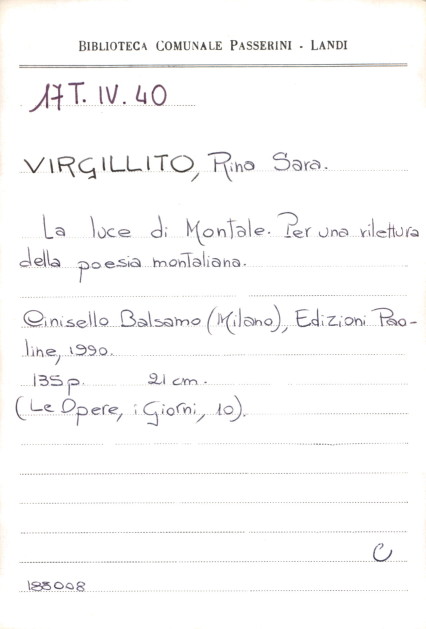 BIBLIOTECA COMUNALE PASSERINI - LANDI
17 T. IV. 40
VIRGILLITO, Rina Sara.
La luce di Montale. Per una rilettura
della poesia montaliana.
Cinisello Balsamo (Milano), Edizioni Pao-
line, 1990.
135 p. 21 cm.
(Le Opere, i Giorni, 10).
C
183008